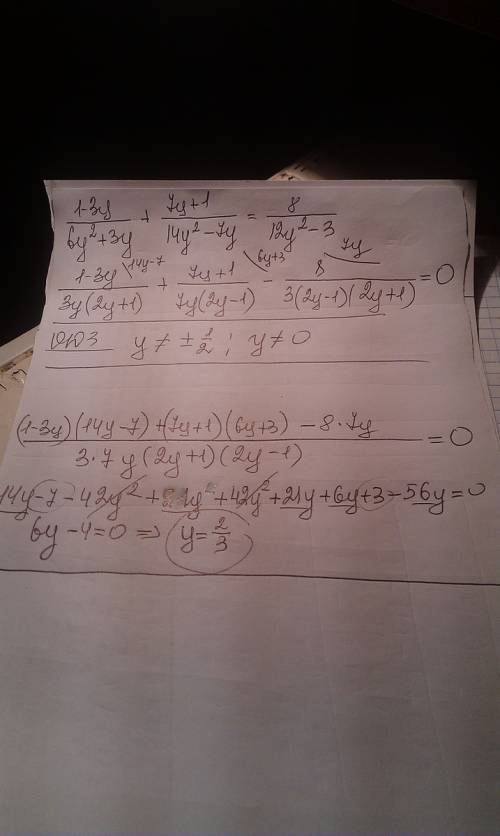 (1-3y)/(6y²+3y) + (7y+1)/(14y²-7y) = 8/(12y²-3)
(1-3y)\14y-7/(3y(2y+1)) + (7y+1)\6y+3/(7y(2y-1)) - 8\7y/(3(2y-1)(2y+1)) = 0
y ≠ ± 1/2 ; y ≠ 0
((1-3y)(14y-7)+(7y+1)(6y+3) - 8·7y)/(3·7y(2y+1)(2y-1)) = 0
14y-7-42y²+21y+42y²+21y+6y+3-56y=0
6y-4=0 ⇒ y=2/3